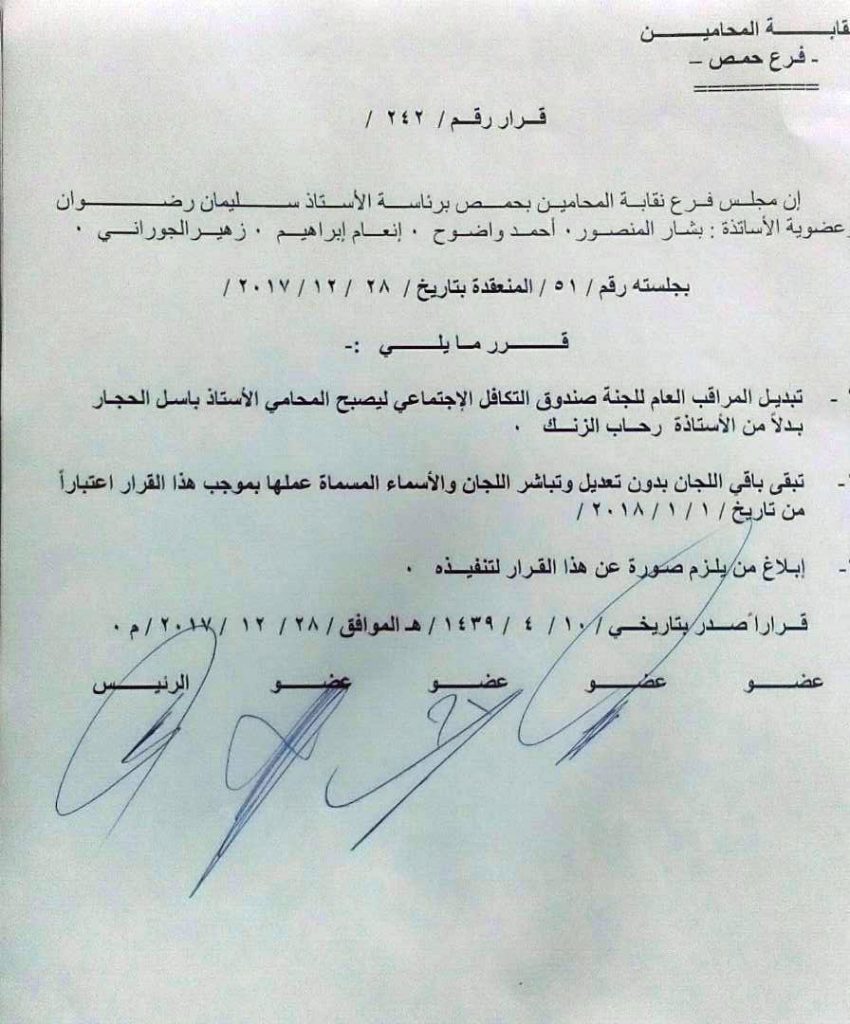 نقابــــة المحاميــــن
- فـرع حمـص –
==============
قـرار رقـم / ٢٤٢ /
إن مجلـس فـرع نقابـة المحاميـن بحمـص برئاسـة الأسـتاذ سـليمان رضـوان
وعضوية الأساتذة : بشار المنصـور٠ أحمـد واضـوح ٠ إنعـام إبراهيـم ٠ زهيـرالجورانـي ٠
بجلسته رقم / ٥١ / المنعقدة بتاريخ / ٢٨ / ١٢ / ٢٠١٧ /
قـــرر مـا يلـــي :-
- تبديل المراقب العام للجنة صندوق التكافل الإجتماعي ليصبح المحامي الأستاذ باسل الحجار
بـدلاً من الأستاذة رحـاب الزنـك ٠
- تبقى باقي اللجان بدون تعديل وتباشر اللجان والأسماء المسماة عملها بموجب هذا القرار اعتباراً
من تاريخ / ١ / ١ / ٢٠١٨ /
- إبـلاغ من يلـزم صـورة عن هذا القرار لتنفيـذه ٠
قـراراً صـدر بتاريخـي / ١٠ / ٤ / ١٤٣٩ / هـ الموافق / ٢٨ / ١٢ / ٢٠١٧ / م ٠
عضــو عضــو عضــو عضــو الرئيــس